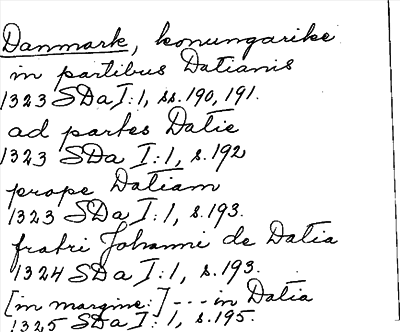 Danmark, konungarike
in partibus Datianis
1323 SDa I:1, ss. 190, 191.
ad partes Datie
1323 SDa I:1, s. 192
prope Datiam
1323 SDa I:1, s. 193.
fratri Johanni de Datia
1324 SDa I:1, s. 193.
[in margine:] --- in Datia
1325 SDa I:1, s. 195.